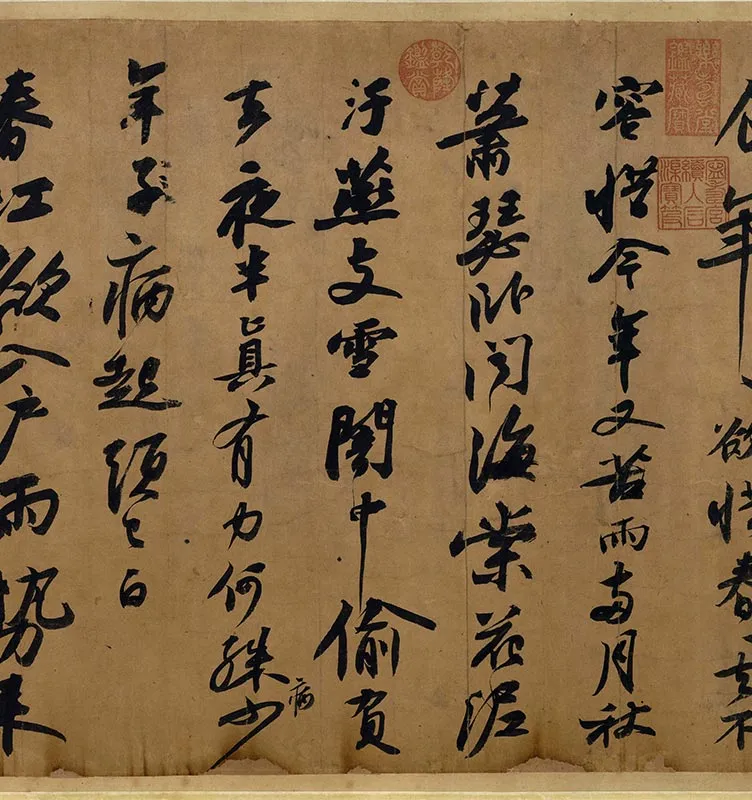 食年〻欲惜春〻去不
容惜今年又苦雨兩月秋
蕭瑟卧聞海棠花泥
汙燕支雪闇中偷負
去夜半眞有力何殊少
病
年子病起頭已白
春江欲入戶雨勢來
乾隆鑑賞